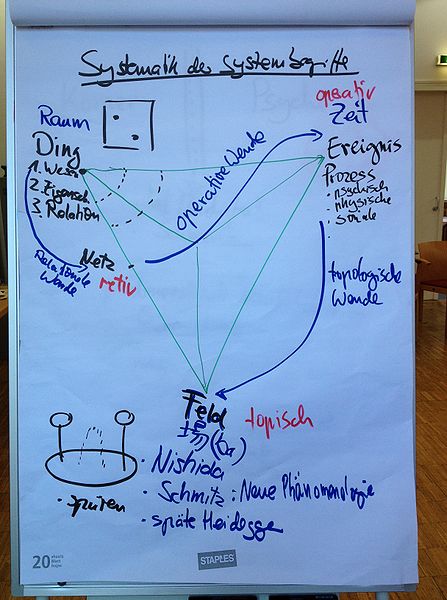 Systematik der Systembegriffe
operativ
Zeit
Raum
Ding
1. Wesen
2. Eigensch.
3. Relation
Ereignis
Prozess
- psychisch
- physische
- soziale
operative Wende
Netz
retiv
Relationale Wende
topologische
Wende
Feld
topisch
場 (ba)
· Nishida
· Schmitz: Neue Phänomenologie
· späte Heidegger
· spüren
20
STAPLES